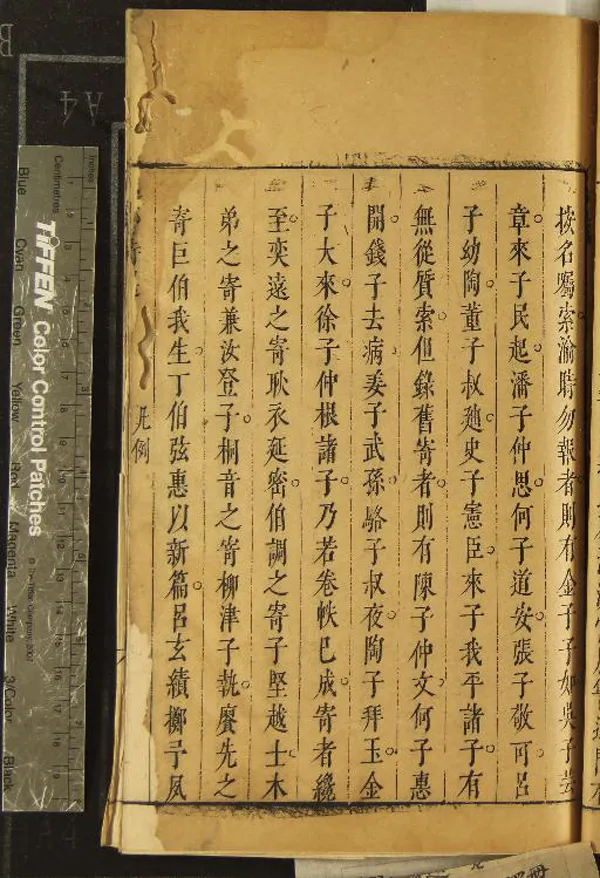 按名囑索渝時勿報者則有金子子如吳子芸
章來子民起潘子仲思何子道安張子敬可呂
子幼陶董子叔廸史子憲臣來子我平諸子有
無從質索但錄舊寄者則有陳子仲文何子惠
開錢子去病姜子武孫駱子叔夜陶子拜玉金
子大來徐子仲根諸子乃若卷帙已成寄者纔
至奕遠之寄耿衣延密伯調之寄子堅越士木
弟之寄兼汝登子桐音之寄柳津子執賡先之
寄巨伯我生丁伯弦惠以新篇呂玄績擲予夙
凡例
Inches
Centimetres
TIFFEN Color Control Patches
© The Tiffen Company, 2007
Blue
Cyan
Green
Yellow
Red
Magenta
White
3/Color
Black
A4
B
A4